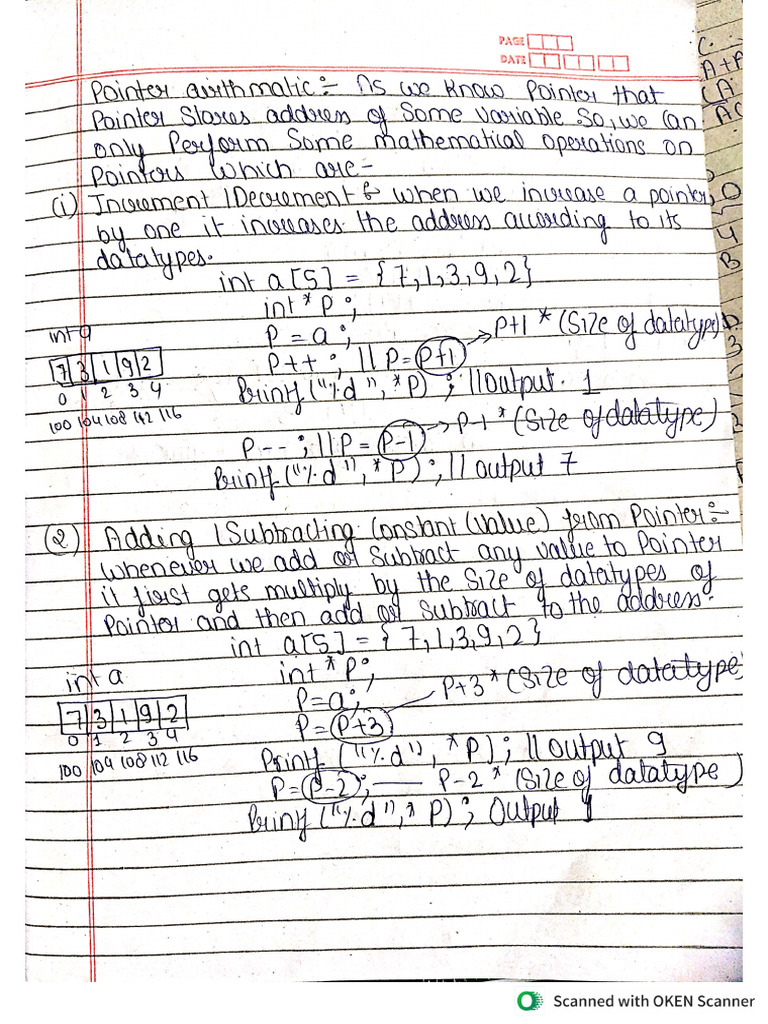 PAGE
DATE
Pointer airthmatic :- As we know Pointer that
Pointer Stores address of Some variable So, we Can
only Perform Some mathematical operations on
Pointers which are -
(i) Increment / Decrement :- when we increase a pointer
by one it increases the address according to its
datatypes.
int a[5] = {7,1,3,9,2}
int *p;
int a
P = a;
P+1 * (Size of datatype)
7 3 1 9 2
P++; // P = P+1
0 1 2 3 4
Printf("%d", *P); // Output. 1
100 104 108 112 116
P--; // P = P-1
P-1 * (Size of datatype)
Printf("%d", *P); // output 7
(2) Adding / Subtracting Constant (value) from Pointer :-
whenever we add or Subtract any value to Pointer
it first gets multiply by the Size of datatypes of
Pointer and then add or subtract to the address.
int a[5] = {7,1,3,9,2}
int a
int *P;
P+3 * (Size of datatype
P=a;
7 3 1 9 2
P = P+3
0 1 2 3 4
100 104 108 112 116
Printf ("%d"), *P); // Output 9
P = P-2; P-2 * (Size of datatype)
Printf ("%d", *P); Output 1
Scanned with OKEN Scanner